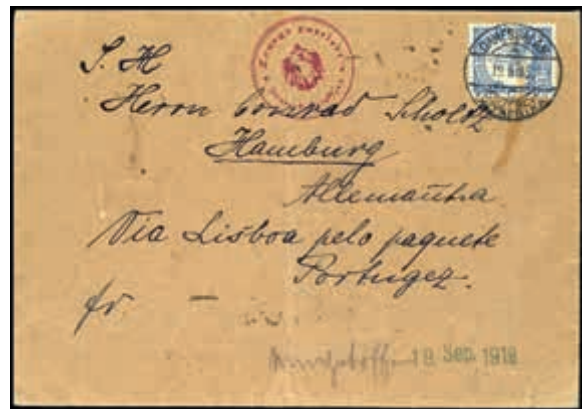 S. H
Herrn Conrad Scholtz
Hamburg
Allemanha
Via Lisboa pelo paquete
Portugez.
fr —
18. Sep. 1918